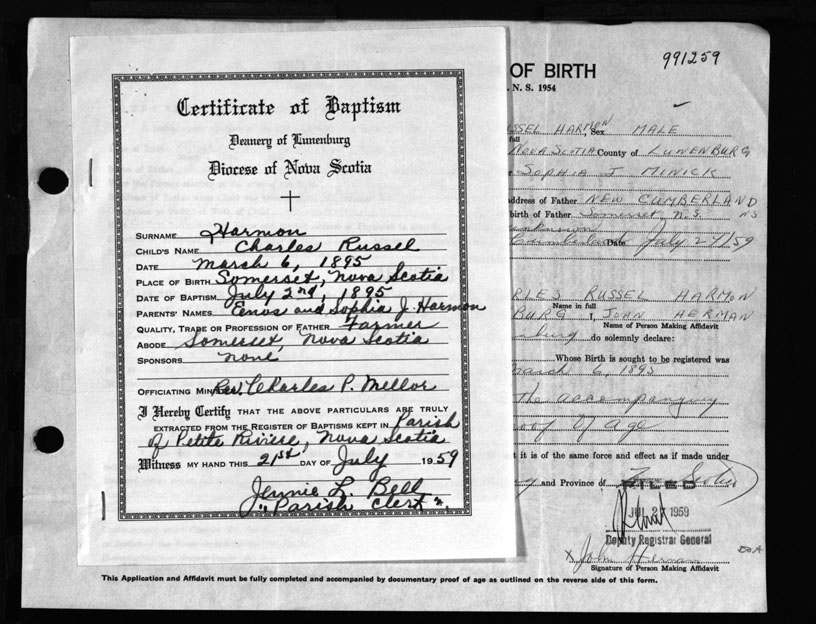 Certificate of Baptism
Deanery of Lunenburg
Diocese of Nova Scotia
SURNAME Harmon
CHILD'S NAME Charles Russel
DATE March 6, 1895
PLACE OF BIRTH Somerset, Nova Scotia
DATE OF BAPTISM July 2nd, 1895
PARENTS' NAMES Eenos and Sophia J. Harmon
QUALITY, TRADE OR PROFESSION OF FATHER Farmer
ABODE Somerset, Nova Scotia
SPONSORS none
OFFICIATING MINISTER Rev. Charles P. Mellor
I Hereby Certify THAT THE ABOVE PARTICULARS ARE TRULY
EXTRACTED FROM THE REGISTER OF BAPTISMS KEPT IN Parish
of Petite Riviere, Nova Scotia
Witness MY HAND THIS 21st DAY OF July 1959
Jennie L. Bell
"Parish Clerk".
991259
OF BIRTH
N. S. 1954
RUSSEL HARMON, Sex MALE
full
NOVA SCOTIA County of LUNENBURG
SOPHIA J. MINICK
address of Father NEW CUMBERLAND
birth of Father Somerset, N.S. NS
unknown
Date July 27/59
CHARLES RUSSEL HARMON
Name in full
BURG I, JOHN HERMAN
Name of Person Making Affidavit
nburg do solemnly declare:
Whose Birth is sought to be registered was
March 6, 1895
The accompanying
proof of age
t it is of the same force and effect as if made under
and Province of Nova Scotia
FILED
JUL 27 1959
Deputy Registrar General
x John Herman
Signature of Person Making Affidavit
This Application and Affidavit must be fully completed and accompanied by documentary proof of age as outlined on the reverse side of this form.